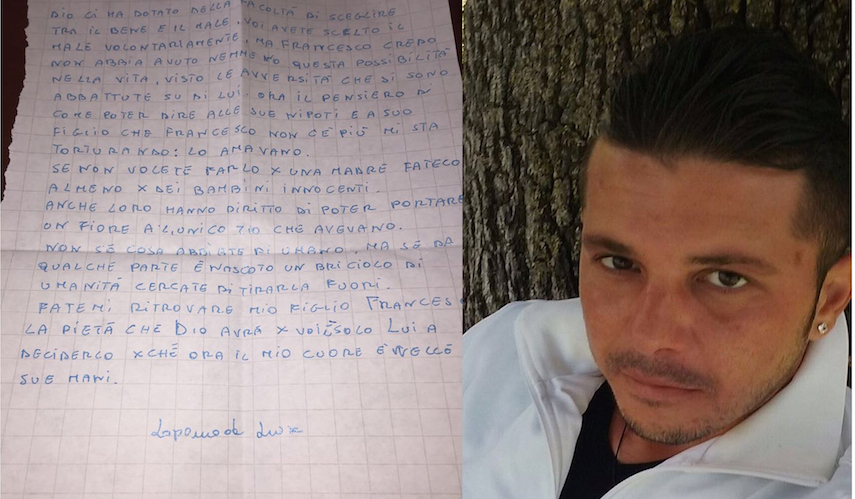 DIO CI HA DOTATO DELLA FACOLTÀ DI SCEGLIRE
TRA IL BENE E IL MALE. VOI AVETE SCELTO IL
MALE VOLONTARIAMENTE, MA FRANCESCO CREDO
NON ABBIA AVUTO NEMMENO QUESTA POSSIBILITÀ
NELLA VITA, VISTO LE AVVERSITÀ CHE SI SONO
ABBATTUTE SU DI LUI. ORA IL PENSIERO DI
COME POTER DIRE ALLE SUE NIPOTI E A SUO
FIGLIO CHE FRANCESCO NON C'È PIÙ MI STA
TORTURANDO: LO AMAVANO.
SE NON VOLETE FARLO X UNA MADRE FATELO
ALMENO X DEI BAMBINI INNOCENTI.
ANCHE LORO HANNO DIRITTO DI POTER PORTARE
UN FIORE A L'UNICO ZIO CHE AVEVANO.
NON SÈ COSA ABBIATE DI UMANO, MA SÈ DA
QUALCHE PARTE È NASCOTO UN BRICIOLO DI
UMANITÀ CERCATE DI TIRARLA FUORI.
FATEMI RITROVARE MIO FIGLIO FRANCESCO
LA PIETÀ CHE DIO AVRÀ X VOI È SOLO LUI A
DECIDERLO XCHÉ ORA IL MIO CUORE È NELLE
SUE MANI.